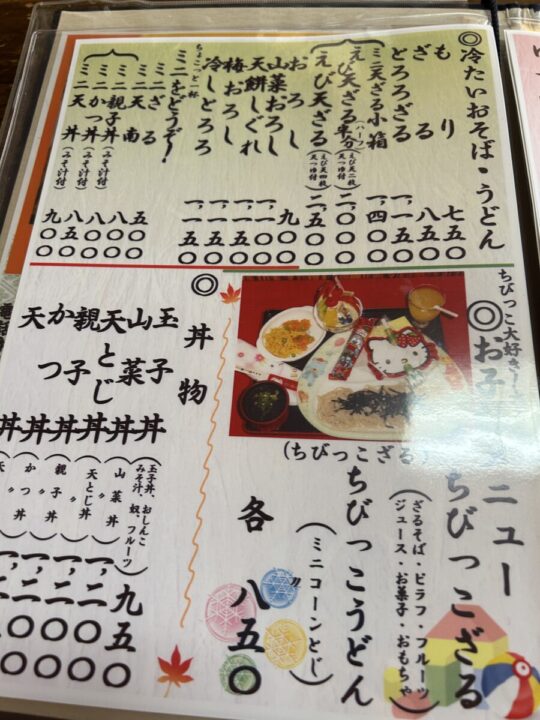 ◎冷たいおそば・うどん
もり 七五〇
ざる 八五〇
とろろざる 一、一五〇
ミニ天ざる小箱 一、四〇〇
えび天ざる半分(ハーフ)(えび天二枚 天つゆ付) 二、〇〇〇
えび天ざる(えび天四枚 天つゆ付) 二、五〇〇
おろし 九〇〇
山菜おろし 一、一〇〇
天餅しぐれ 一、一五〇
梅おろし 一、一五〇
冷しとろろ 一、一五〇
ちょこっと一杯
ミニをどうぞ!
ミニざる 五〇〇
ミニ天南 八〇〇
ミニ親子丼(みそ汁付) 八〇〇
ミニかつ丼(みそ汁付) 八五〇
ミニ天丼(みそ汁付) 九〇〇
ちびっこ大好き
◎お子 ニュー
(ちびっこざる)
ちびっこざる
(ざるそば・ピラフ・フルーツ
ジュース・お菓子・おもちゃ)
ちびっこうどん
(ミニコーンとじ)
各 八五〇
◎丼物
玉子丼
山菜丼
天とじ丼
親子丼
かつ丼
天丼
(玉子丼、おしんこ
みそ汁、奴、フルーツ)
山菜丼 〃
天とじ丼 〃
親子丼 〃
かつ丼 〃
九五〇